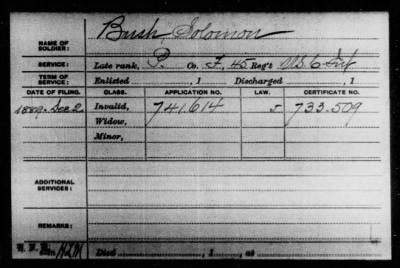 NAME OF SOLDIER: Bush Solomon
SERVICE: Late rank, P. Co. F, 45 Reg't U.S.C. Inf
TERM OF SERVICE: Enlisted , 1 Discharged , 1
DATE OF FILING. CLASS. APPLICATION NO. LAW. CERTIFICATE NO.
1889, Dec 2 Invalid, 741.614 733.509
Widow,
Minor,
ADDITIONAL SERVICES:
REMARKS:
Died , 1 , at